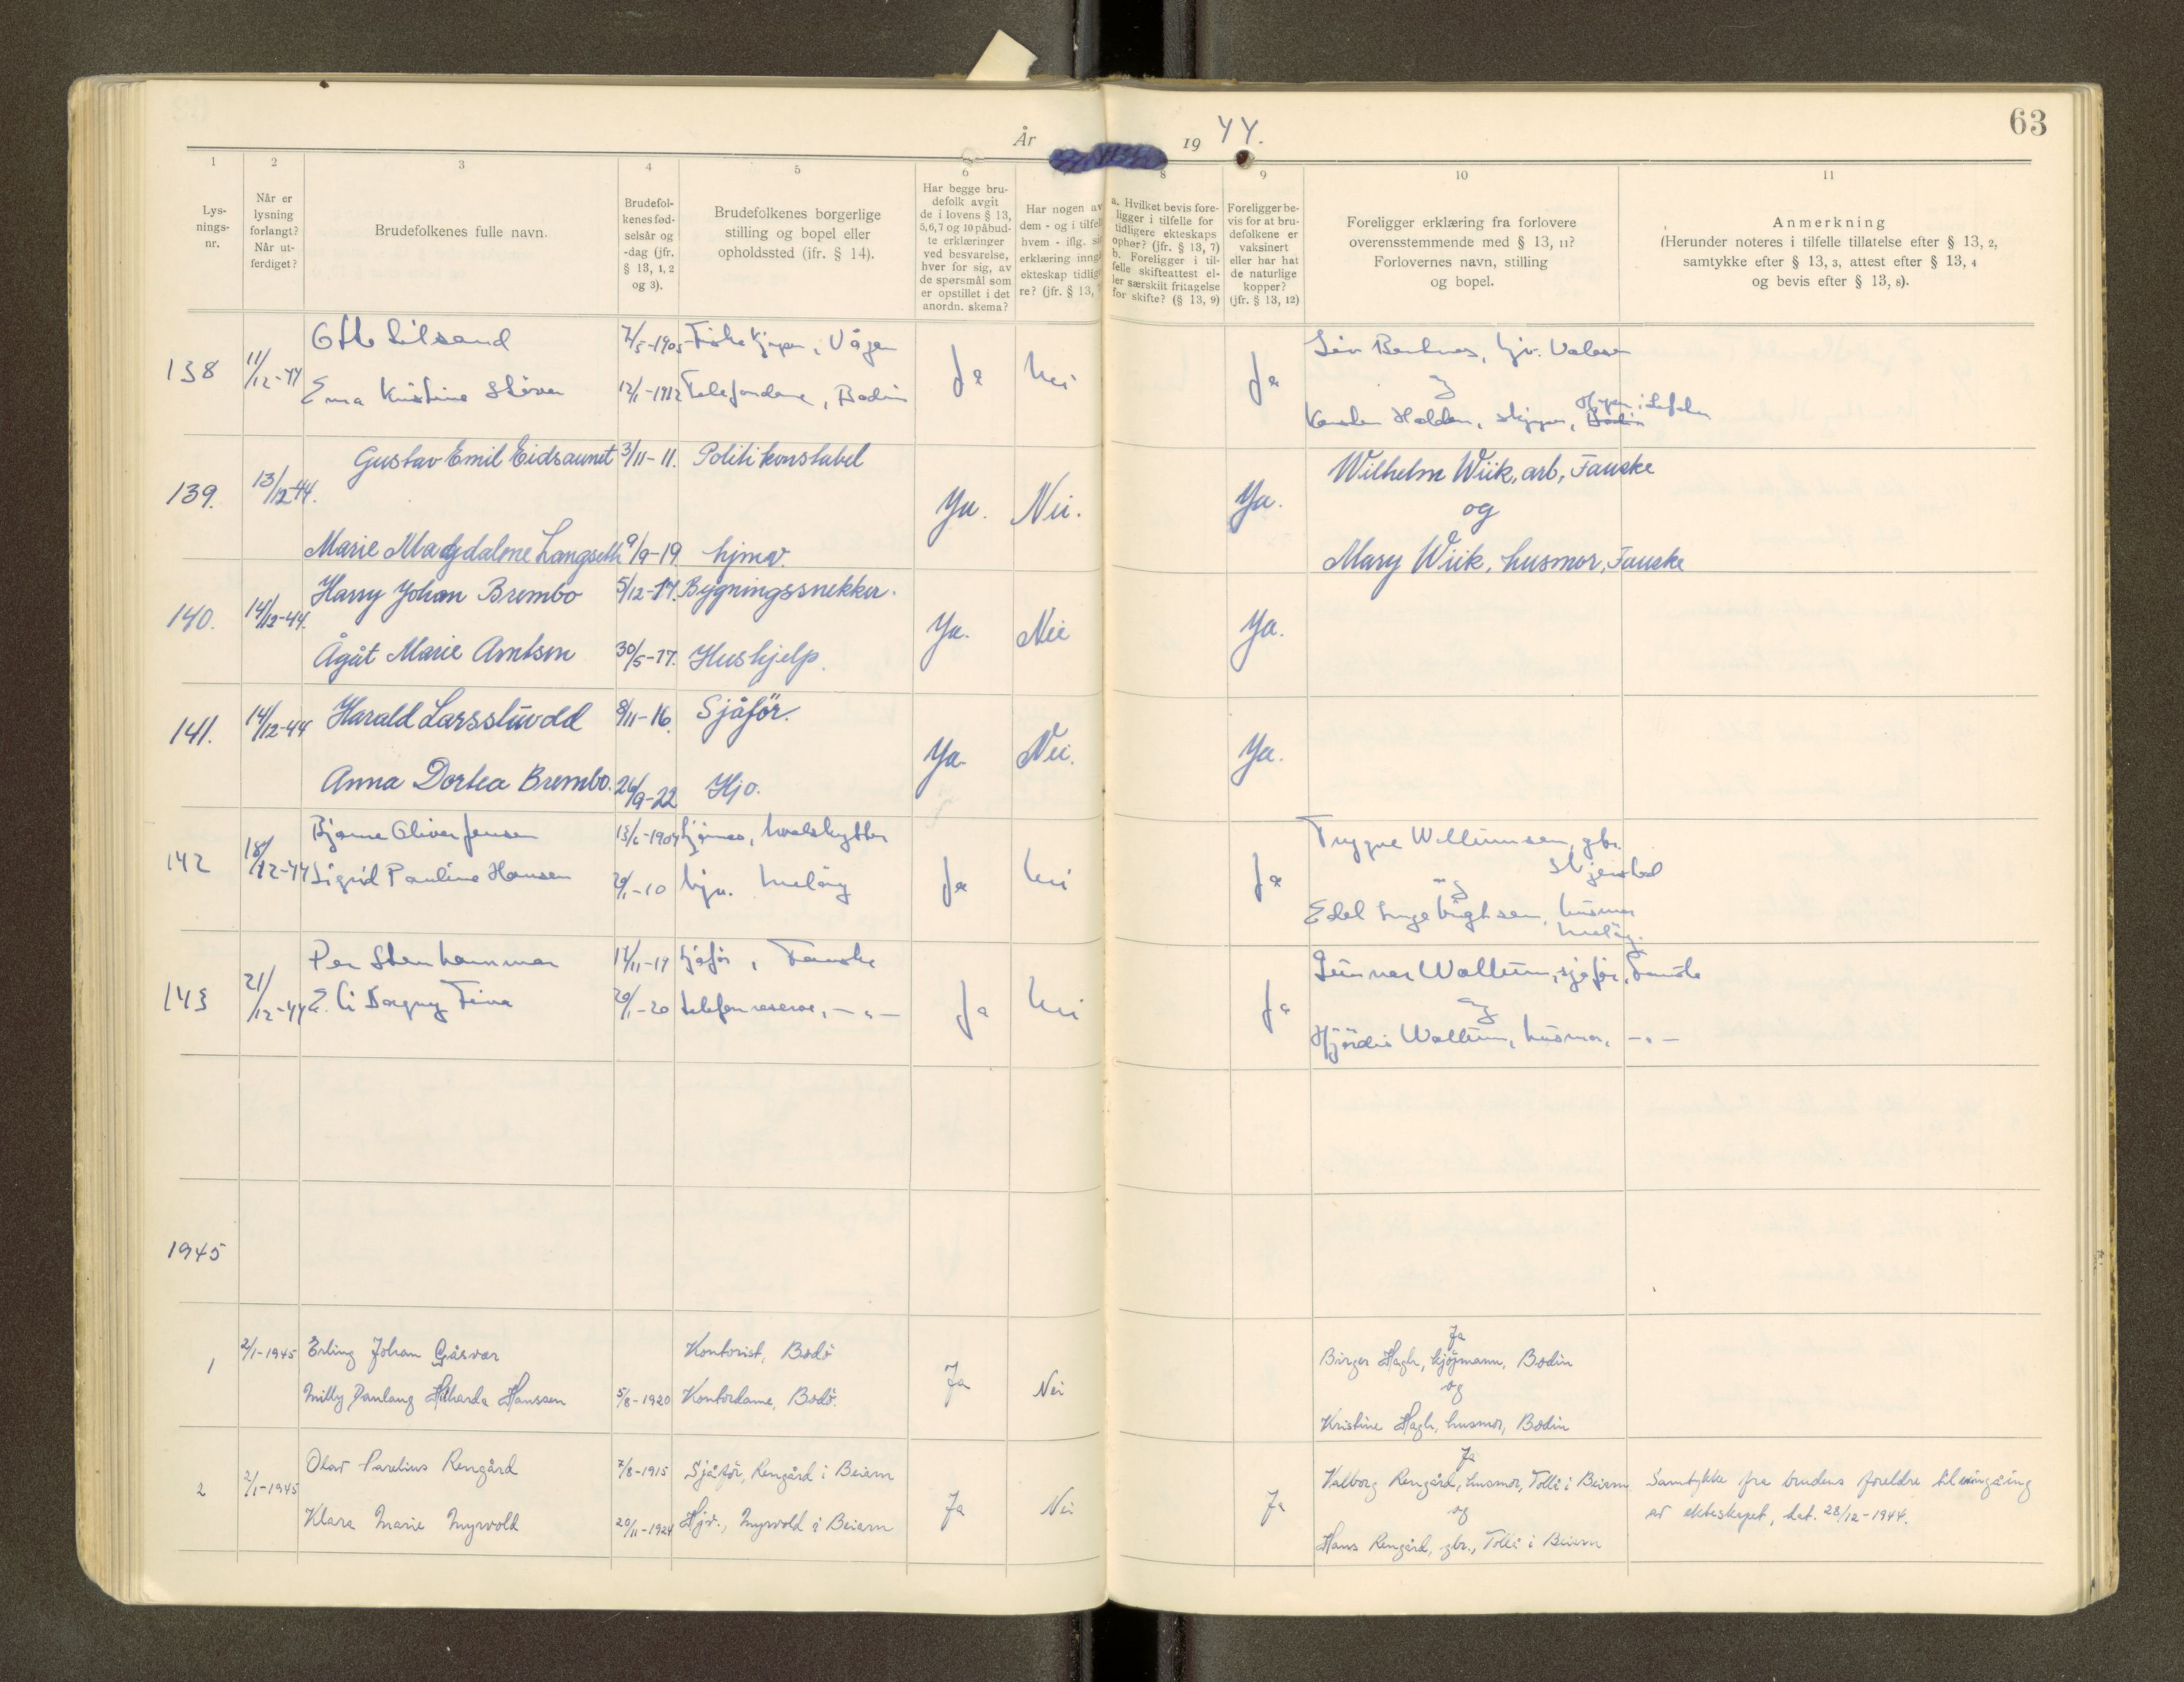 63
År 1944.
1 2 3 4 5 6 8 9 10 11
Lys-
nings-
nr.
Når er
lysning
forlangt?
Når ut-
ferdiget?
Brudefolkenes fulle navn.
Brudefol-
kenes fød-
selsår og
-dag (jfr.
§ 13, 1, 2
og 3).
Brudefolkenes borgerlige
stilling og bopel eller
opholdssted (jfr. § 14).
Har begge bru-
defolk avgit
de i lovens § 13,
5, 6, 7 og 10 påbud-
te erklæringer
ved besvarelse,
hver for sig, av
de spørsmål som
er opstillet i det
anordn. skema?
Har nogen av
dem - og i tilfel
hvem - iflg. sit
erklæring inngå
ekteskap tidlige
re? (jfr. § 13,
a. Hvilket bevis fore-
ligger i tilfelle for
tidligere ekteskaps
ophør? (jfr. § 13, 7)
b. Foreligger i til-
felle skifteattest el-
ler særskilt fritagelse
for skifte? (§ 13, 9)
Foreligger be-
vis for at bru-
defolkene er
vaksinert
eller har hat
de naturlige
kopper?
(jfr. § 13, 12)
Foreligger erklæring fra forlovere
overensstemmende med § 13, 11?
Forlovernes navn, stilling
og bopel.
Anmerkning
(Herunder noteres i tilfelle tillatelse efter § 13, 2,
samtykke efter § 13, 3, attest efter § 13, 4
og bevis efter § 13, 8).
138 11/12-44 Otto 7/5-1905 Vågan Ja Nei Ja
Kristine 12/1-1912 Telefondame, Bodin
og
Halden, skipper,
139. 13/12-44. Gustav Emil Eidsaunet 3/11-11. Politikonstabel Ja. Nei. Ja. Wilhelm Wiik, arb, Fauske
og
Marie Magdalene Langseth 9/9-19 hjmv. Mary Wiik, husmor, Fauske
140. 14/12-44. Harry Johan Brembo 5/12-17. Bygningssnekker. Ja. Nei Ja.
Ågåt Marie Arntsen 30/5-17. Hushjelp.
141. 14/12-44 Harald Larsstuvold 8/11-16. Sjåför. Ja. Nei. Ja.
Anna Dortea Brembo. 26/9-22 Hjv.
142 18/12-44 Bjarne Oliver Jensen Ja Nei Ja Trygve Willumsen, gbr.
Skjerstad
Sigrid Pauline Hansen 20/1-10 hjv. Meløy og
Edel Ingebrigtsen, husmor
Meløy.
143 21/12-44 Per Stenhammer 17/11-19 sjåför, Fauske Ja Nei Ja Gunnar Wallum, sjåför, Fauske
Eli Dagny 20/1-20 -"- og
Hjördis Wallum, husmor, -"-
1945
1 2/1-1945 Erling Johan Gåsvær Kontorist, Bodö Ja Nei Ja
Birger Hagh, kjøpmann, Bodin
og
Milly Hanssen 5/8-1920 Kontordame, Bodö. Kristine Hagh, husmor, Bodin
2 2/1-1945 Olav Parelius Rengård 7/8-1915 Sjåför, Rengård i Beiarn Ja Nei Ja Ja
Valborg Rengård, husmor, Tollå i Beiarn Samtykke fra brudens foreldre til inngåing
og av ekteskapet, dat. 28/12-1944.
Klara Marie Myrvold 20/11-1924 Hjv., Myrvold i Beiarn Hans Rengård, gbr., Tollå i Beiarn